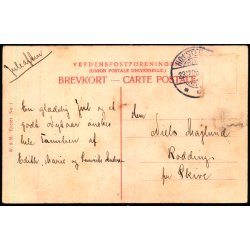 Juleaften
VERDENSPOSTFORENINGEN
(UNION POSTALE UNIVERSELLE)
BREVKORT — CARTE POSTALE
En glædelig Jul og et
godt Nytaar ønskes
hele Familien af
Edith, Marie og Laurids
Hrn
Niels Møjlund
Roddings
pr Skive